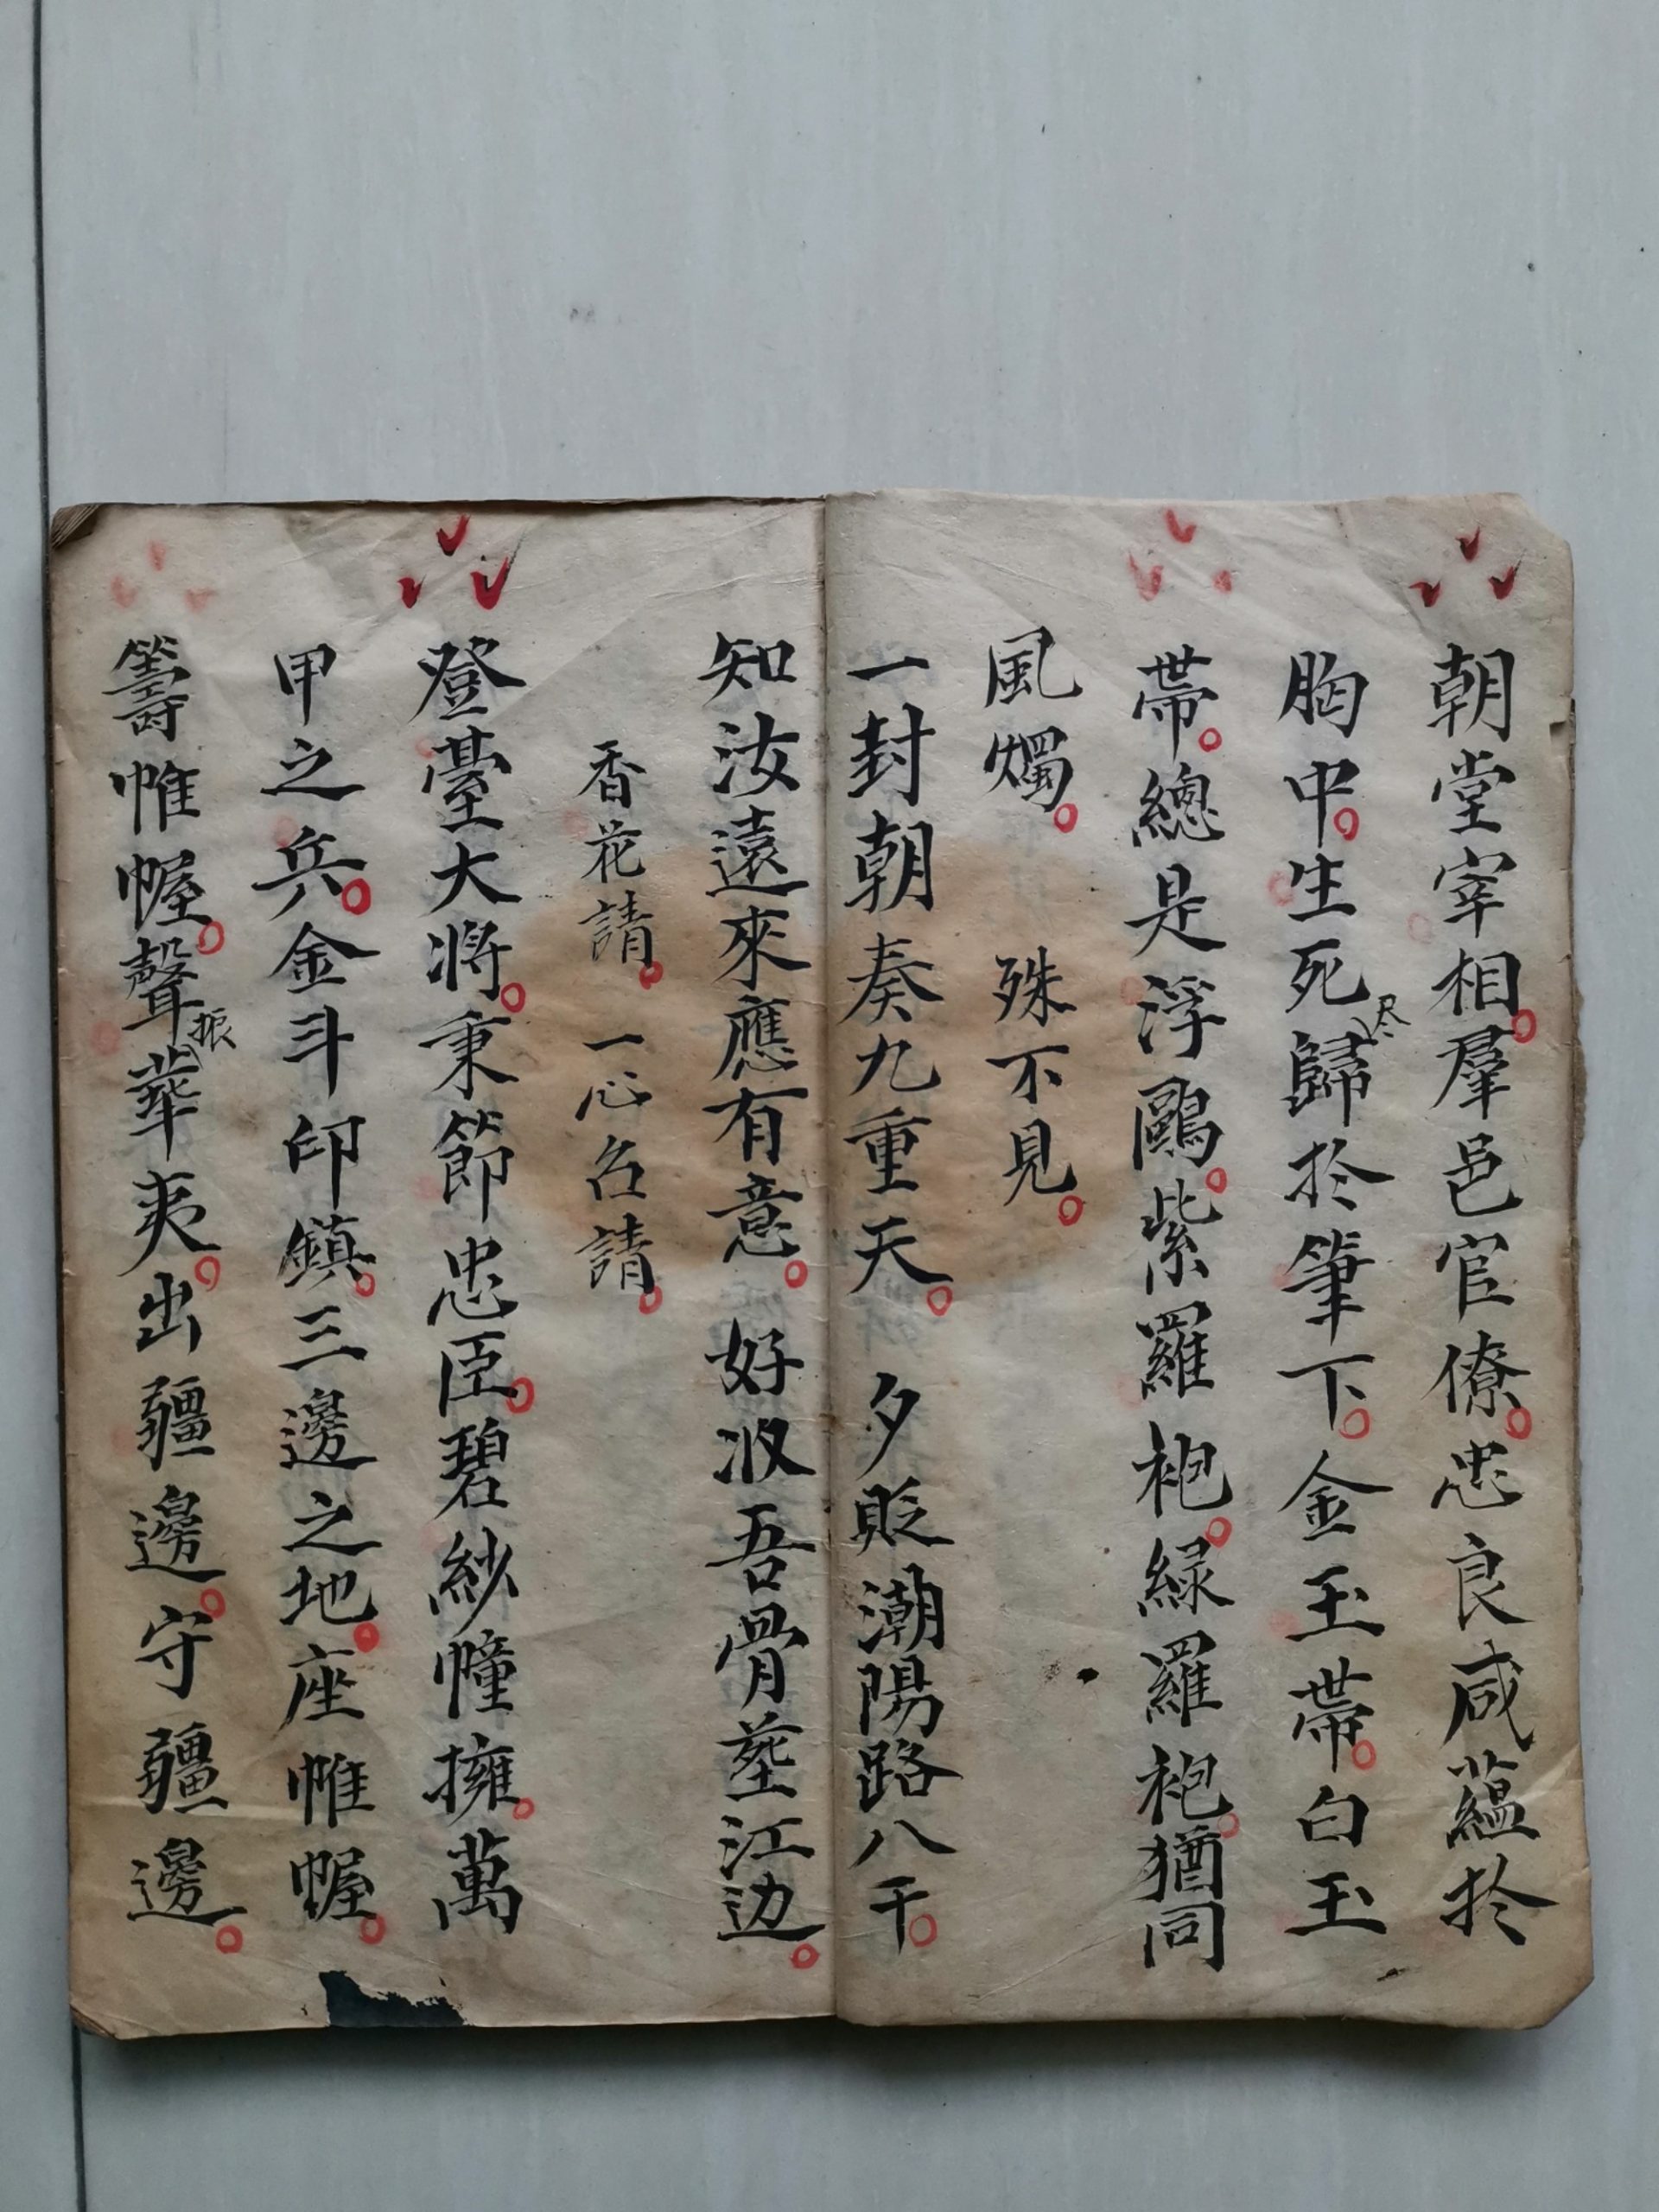 朝堂宰相。羣邑官僚。忠良咸蘊扵
胸中。生死尽歸扵筆下。金玉帶。白玉
帶。總是浮鷗。紫羅袍。緑羅袍。猶同
風燭。 殊不見。
一封朝奏九重天。 夕貶潮陽路八千。
知汝遠來應有意。 好収吾骨塟江边。
香花請。 一心召請。
登臺大將。秉節忠臣。碧紗幢擁。萬
甲之兵。金斗印鎮。三邊之地。座帷幄。
籌帷幄。聲振華夷。出疆邊。守疆邊。